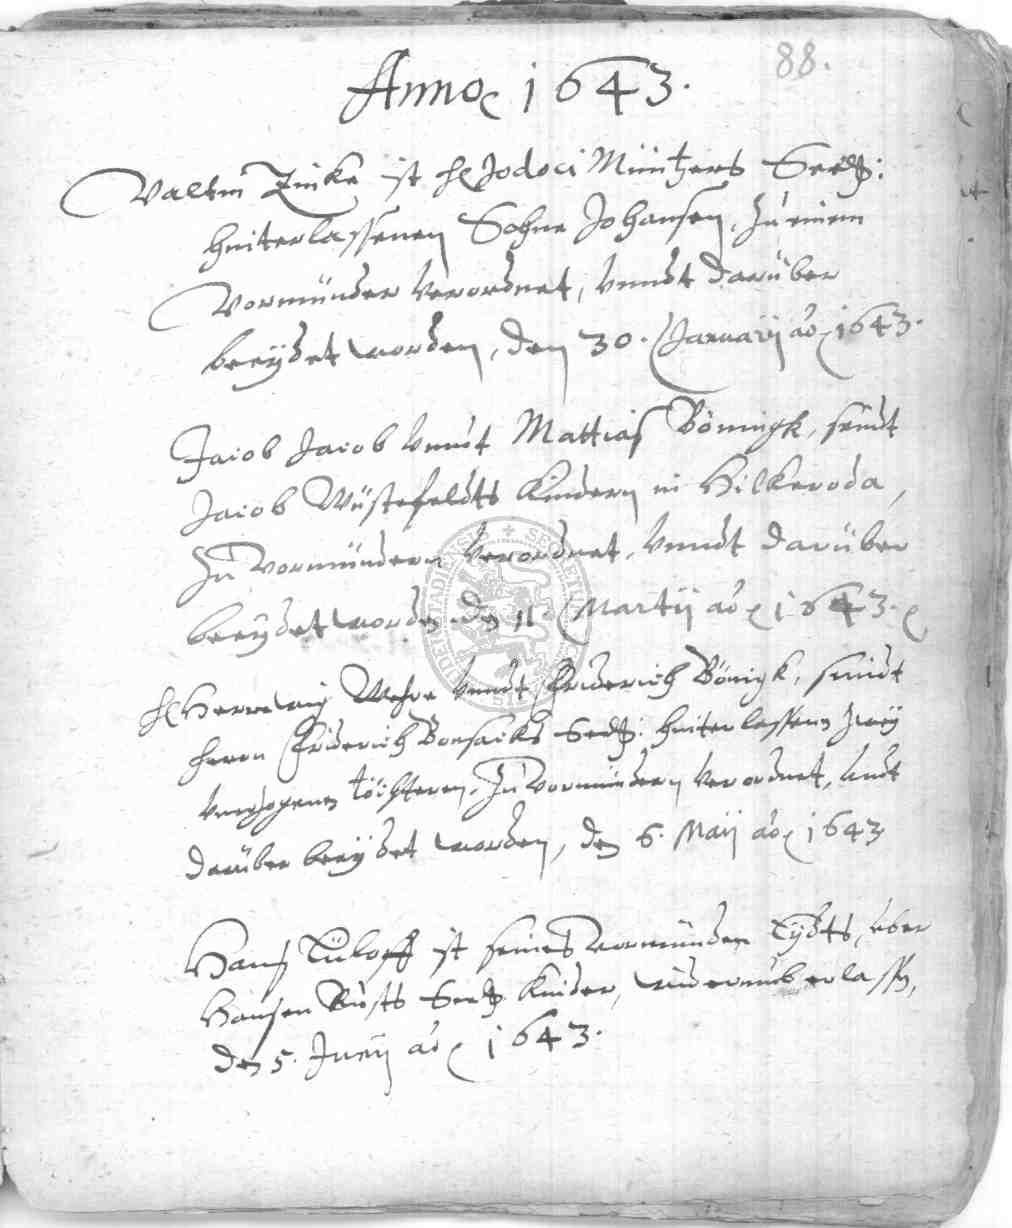 88.
Anno 1643.
Valtin Zinke ist H Jodoci Müntzers Seelg:
hinterlassenen Sohne Johansen, zu einem
Vormünder verordnet, vnndt darüber
beeydet worden, den 30. Januarij ao 1643.
Jacob Jacob vnndt Mattias Böningk, seindt
Jacob Wüstefeldts Kindern in Hilkeroda,
zu Vormündern verordnet, vnndt darüber
beeydet worden den 11. Martij ao 1643.
H Herrwig Wehre vnndt Friderich Bönigk, seindt
Herrn Friderich Bonsacks Seelg: hinterlassenen zwey
töchteren, zu Vormündern verordnet, vndt
darüber beeydet worden, den 6. Maij ao 1643
Hans Lüloff ist seines vormünden Eydts, vber
Hansen Busts Seelg Kinder, widerumb erlassen,
den 5. Junij ao 1643.